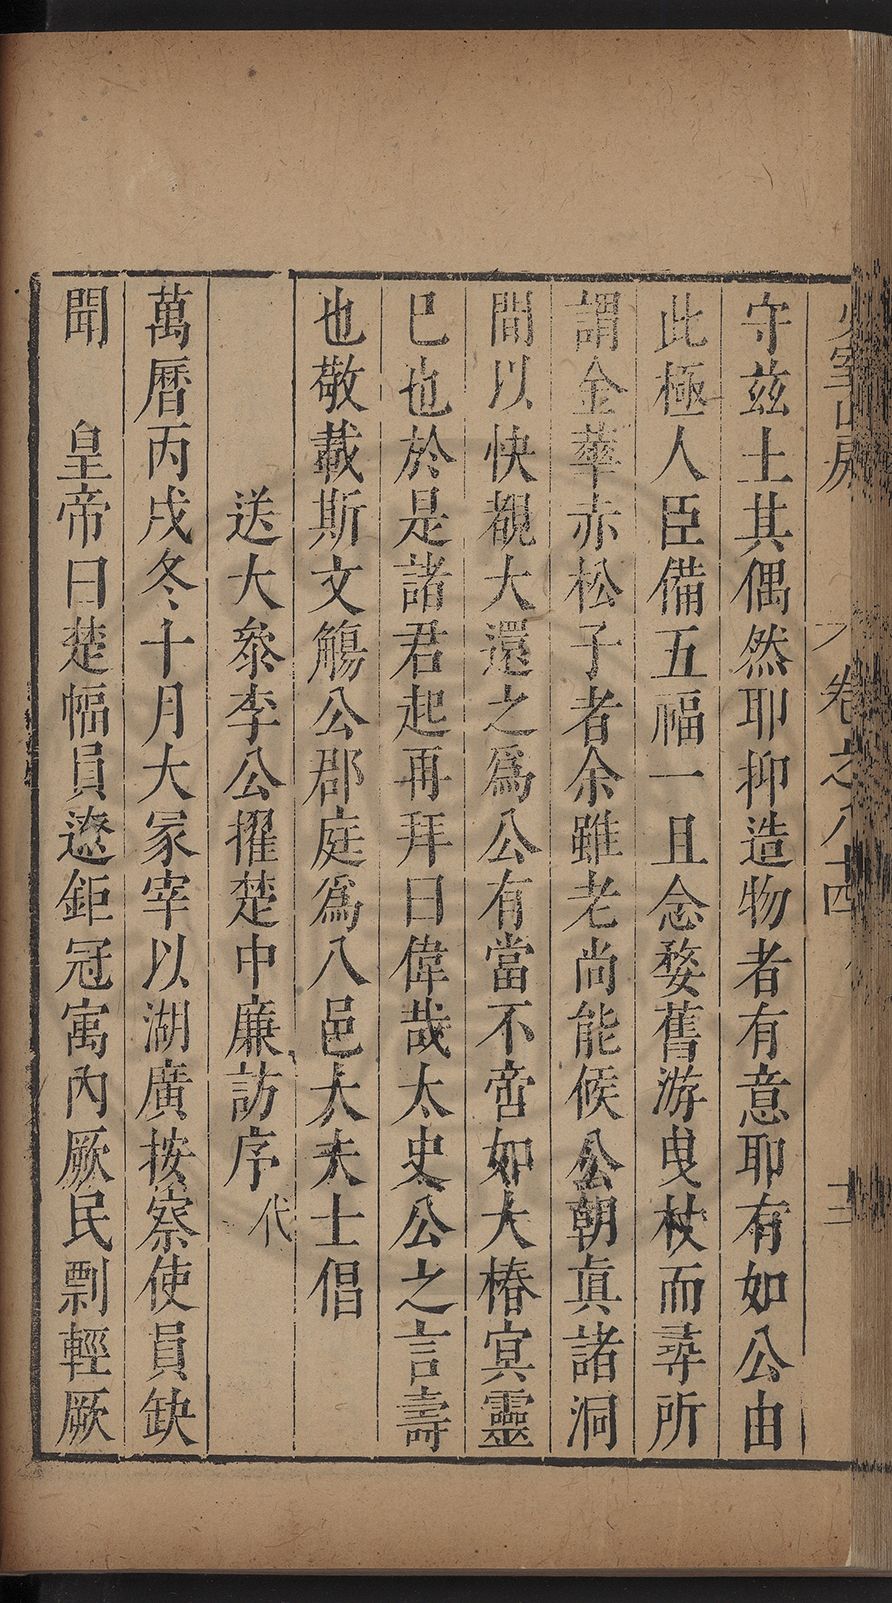 少室山房 卷之八十四 十三
守玆土其偶然耶抑造物者有意耶有如公由
此極人臣備五福一旦念婺舊游曳杖而尋所
謂金華赤松子者余雖老尚能候公朝真諸洞
間以快覩大還之爲公有當不啻如大椿冥靈
巳也於是諸君起再拜曰偉哉太史公之言壽
也敬載斯文觴公郡庭爲八邑大夫士倡
送大叅李公擢楚中廉訪序 代
萬曆丙戌冬十月大冢宰以湖廣按察使員缺
聞 皇帝曰楚幅員遼鉅冠寓內厥民剽輕厥